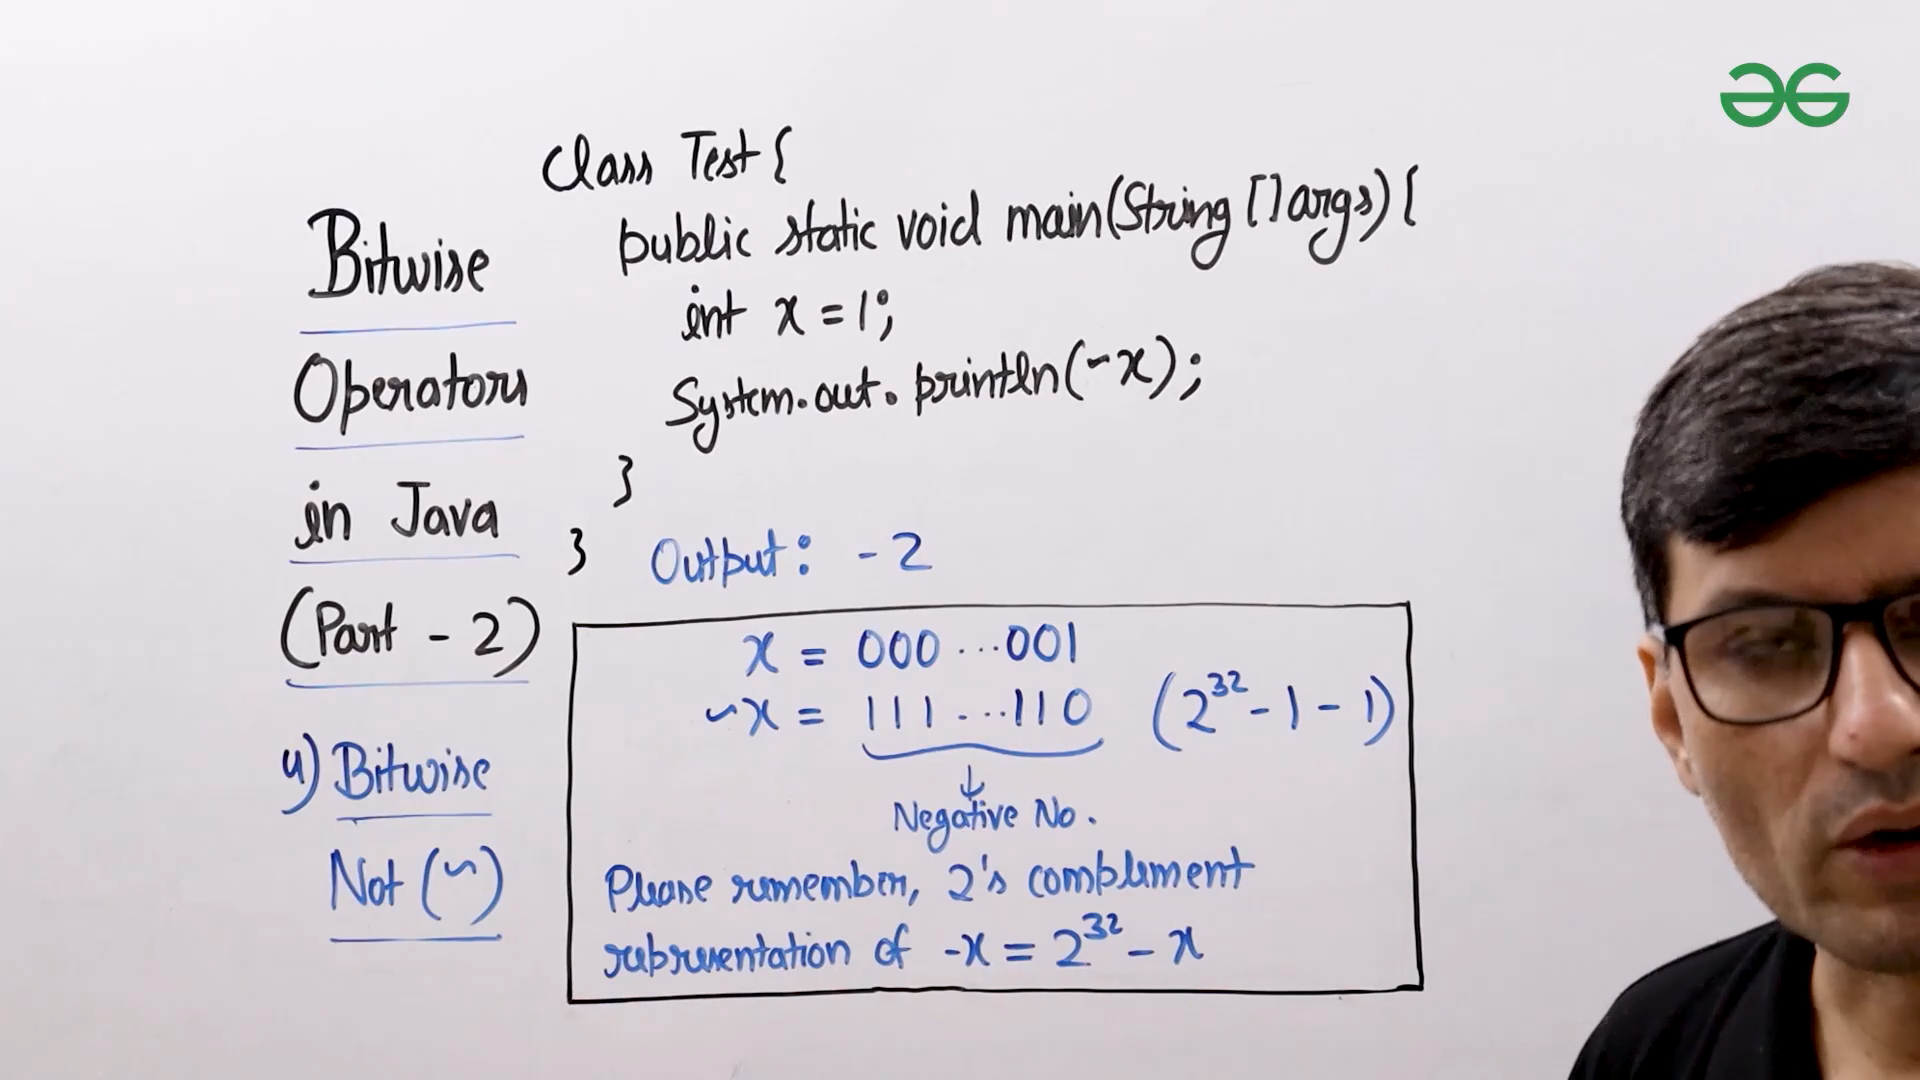 Bitwise
Operators
in Java
(Part - 2)
4) Bitwise
Not (~)
Class Test {
public static void main(String [] args) {
int x = 1;
System.out.println(~x);
}
}
Output: -2
x = 000...001
~x = 111...110 (2^32 - 1 - 1)
↓
Negative No.
Please remember, 2's complement
representation of -x = 2^32 - x